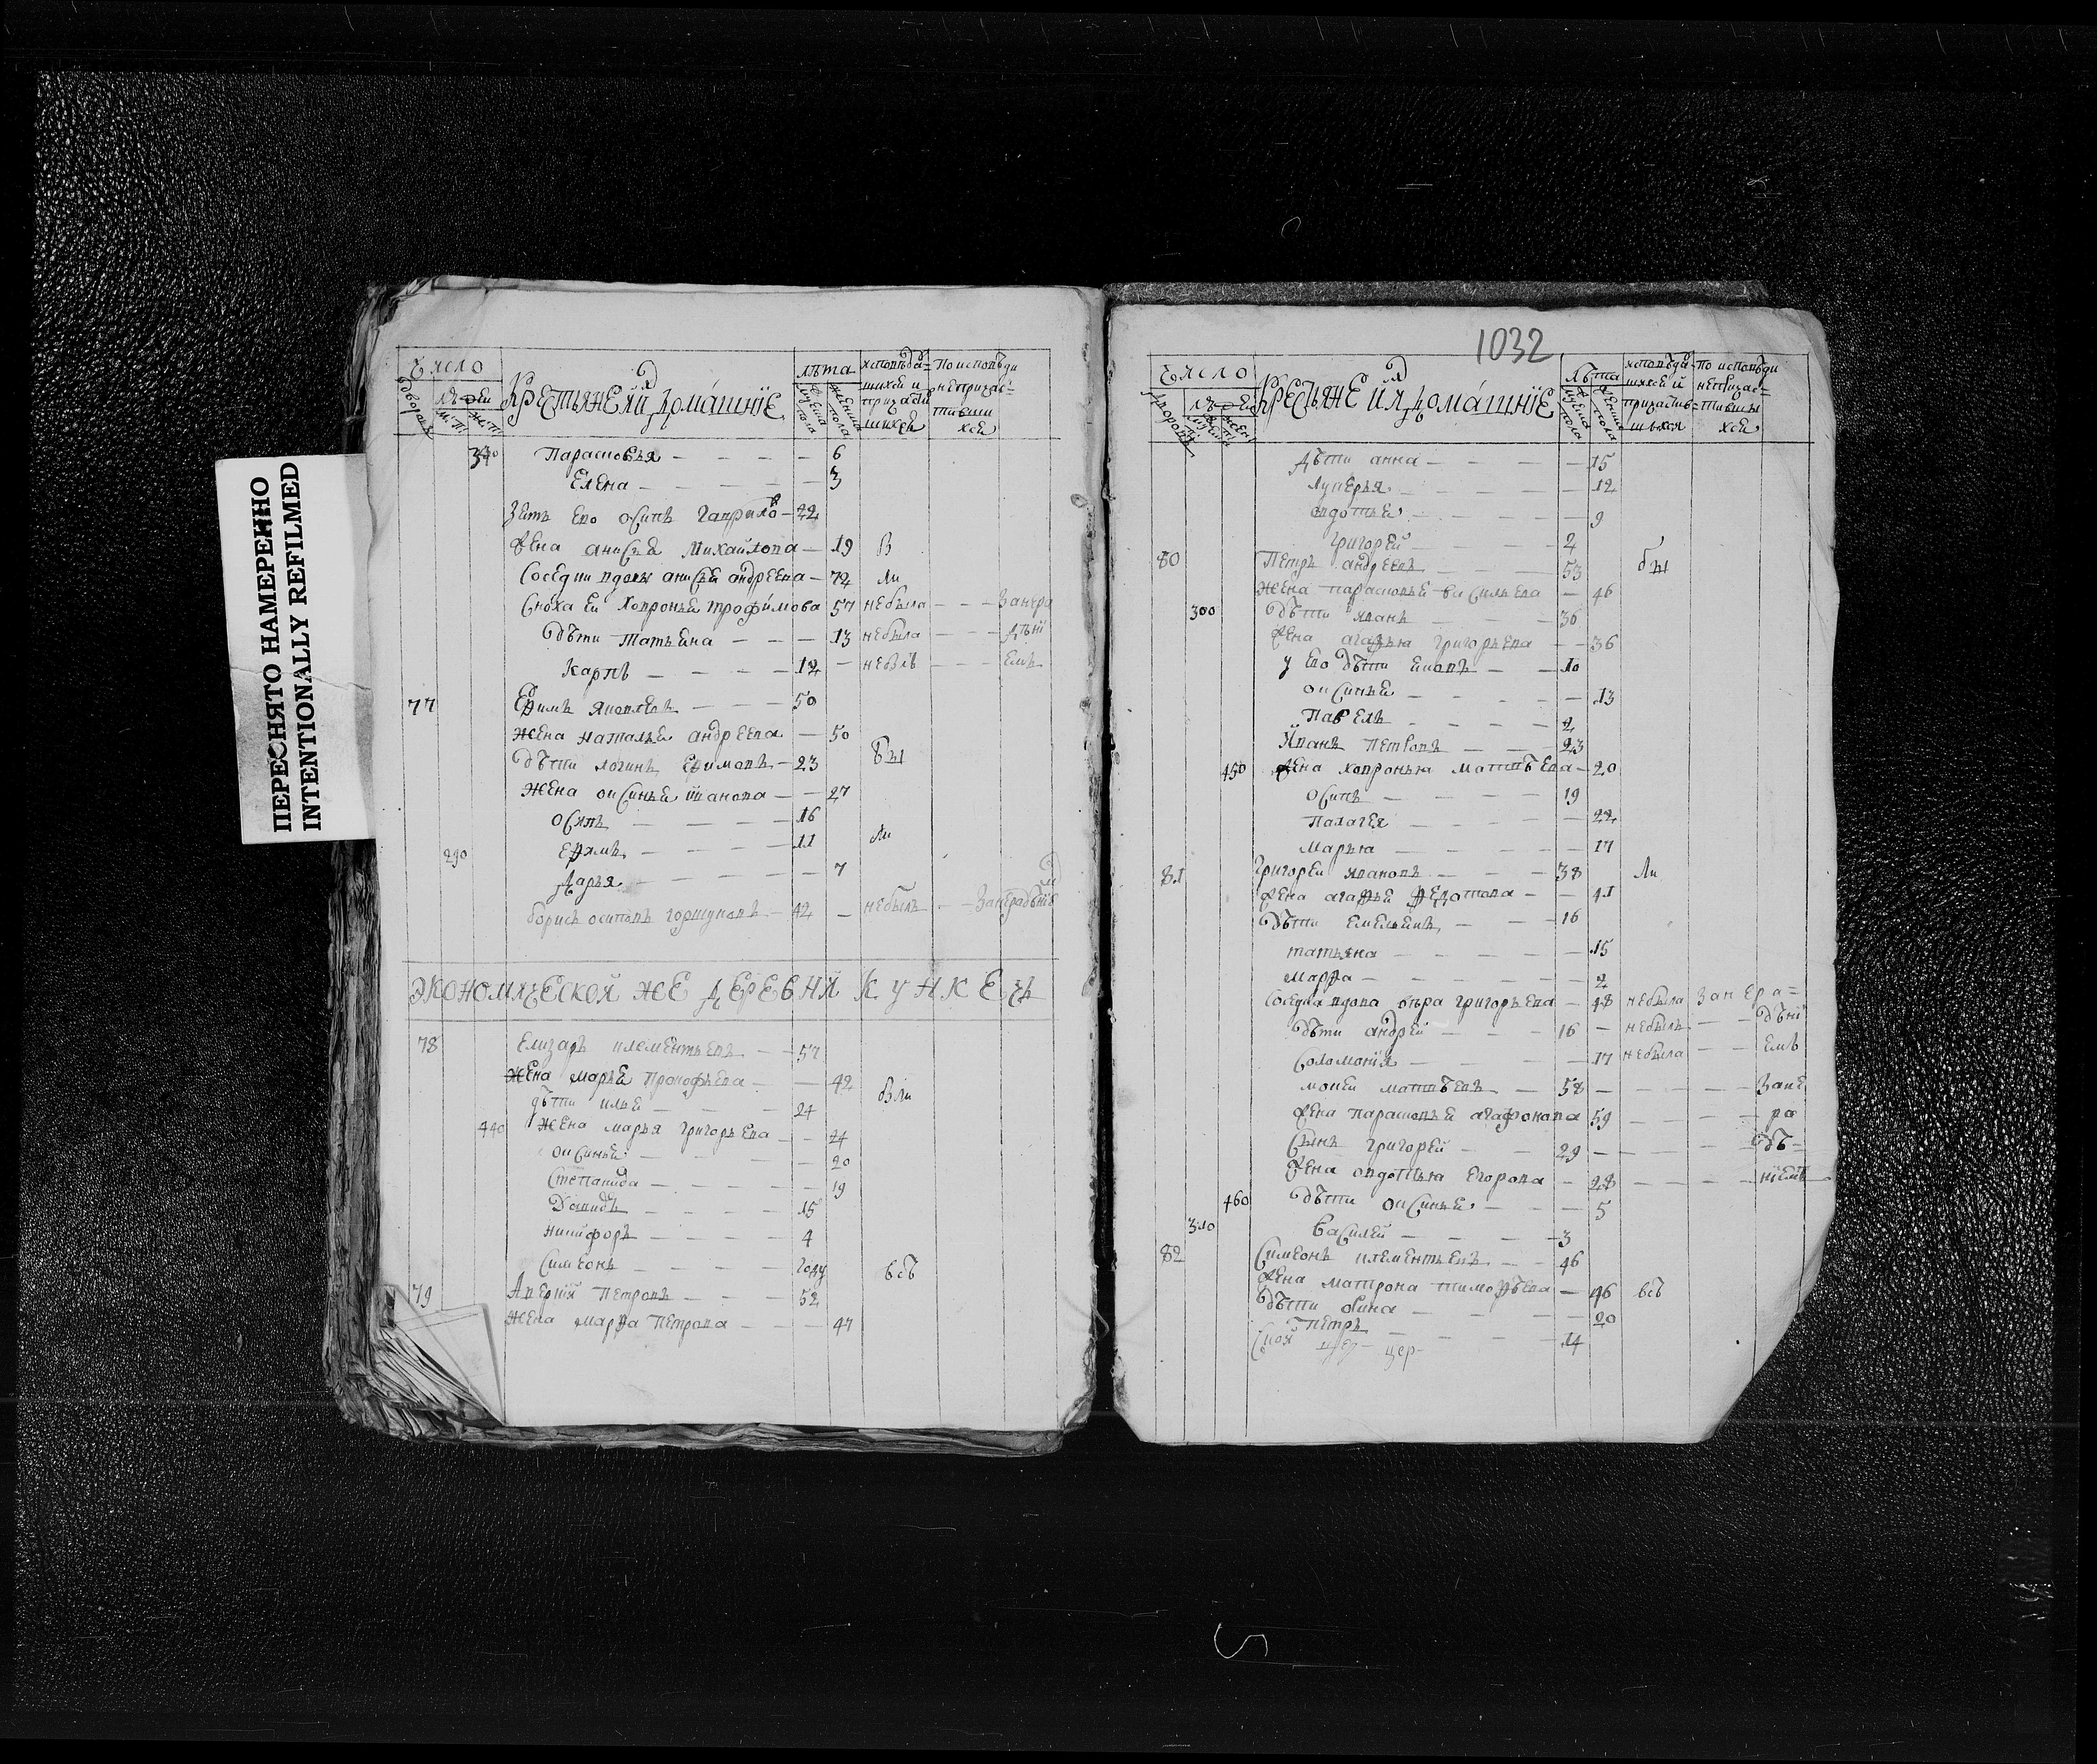 ПЕРЕСНЯТО НАМЕРЕННО
INTENTIONALLY REFILMED
Число
дворовъ
людей
м: п:
ж: п:
Крестьяне и ихъ домашніе
лѣта
мужеска пола
женска пола
исповѣдавшихся и причастившихся
По исповѣди непричастившихся
340 Парасковья — — — — 6
Елена — — — — 3
Зять его Осипъ Гаврилов — 22
Жена Анисья Михайлова — 19 Б
Соседки вдовы Анисьи Андреева — 72 Ли
Сноха ей Ховронья Трофимова 57 небыла — — — Занера
дѣти Татьяна — — — 13 небыла — — — дѣні
Карпъ — — — — 12 — небылъ — — — емъ
77 Ефимъ Яковлевъ — — — 50
Жена Наталья Андреева — 50
дѣти Логинъ Ефимовъ — 23 бы
Жена Оксинья Иванова — — 27
Осипъ — — — — 16
Ефимъ — — — — 11 Ли
290 Дарья — — — — 7
Борисъ Осиповъ Горшуновъ — 42 — небылъ — — Занерадѣніе
Экономической же деревни Кункецъ
78 Елизаръ Клементьевъ — — 57
Жена Марья Прокофьева — — 42 бли
дѣти Илья — — — 24
440 Жена Марья Григорьева — — 24
Оксинья — — — — 20
Степанида — — — — 19
Давидъ — — — — 15
Никифоръ — — — — 4
Симеонъ — — — — году всѣ
79 Аверкій Петровъ — — — 52
Жена Марфа Петрова — — — 47
1032
Число
дворовъ
людей
Крестьяне и ихъ домашніе
лѣта
мужеска пола
женска пола
исповѣдавшихся и причастившихся
по исповѣди непричастившихся
Дѣти Анна — — — — 15
Лукерья — — — — 12
Авдотья — — — — 9
Григорей — — — — 2
80 Петръ Андреевъ — — — 53 бы
Жена Парасковья Васильева — 46
300 дѣти Иванъ — — — 36
Жена Агафья Григорьева — — 36
у его дѣти Яковъ — — 10
Оксинья — — — — 13
Павелъ — — — — 2
Иванъ Петровъ — — — 23
450 Жена Ховронья Матвѣева — 20
Осипъ — — — — 19
Палагея — — — — 22
Марья — — — — 17
81 Григорей Ивановъ — — — 38 Ли
Жена Агафья Федотова — — 41
Дѣти Емельянъ — — — 16
Татьяна — — — — 15
Марфа — — — — 2
Соседка вдова Вѣра Григорьева — 48 небыла Занера=
дѣти Андрей — — — 16 — небылъ — — дѣні
Соломонія — — — — 17 небыла — — емъ
Мокей Матвѣевъ — — 58 — — — — Зане
Жена Парасковья Агафонова 59 — — — ра
Сынъ Григорей — — 29 — — — — дѣ=
Жена Овдотья Егорова — 28 — — — — ніемъ
460 дѣти Оксинья — — — 5
310 Василей — — — — 3
82 Симеонъ Клементьевъ — — 46
Жена Матрона Тимофѣева — 46 всѣ
дѣти — — — 20
Петръ — — — — 14
цер—